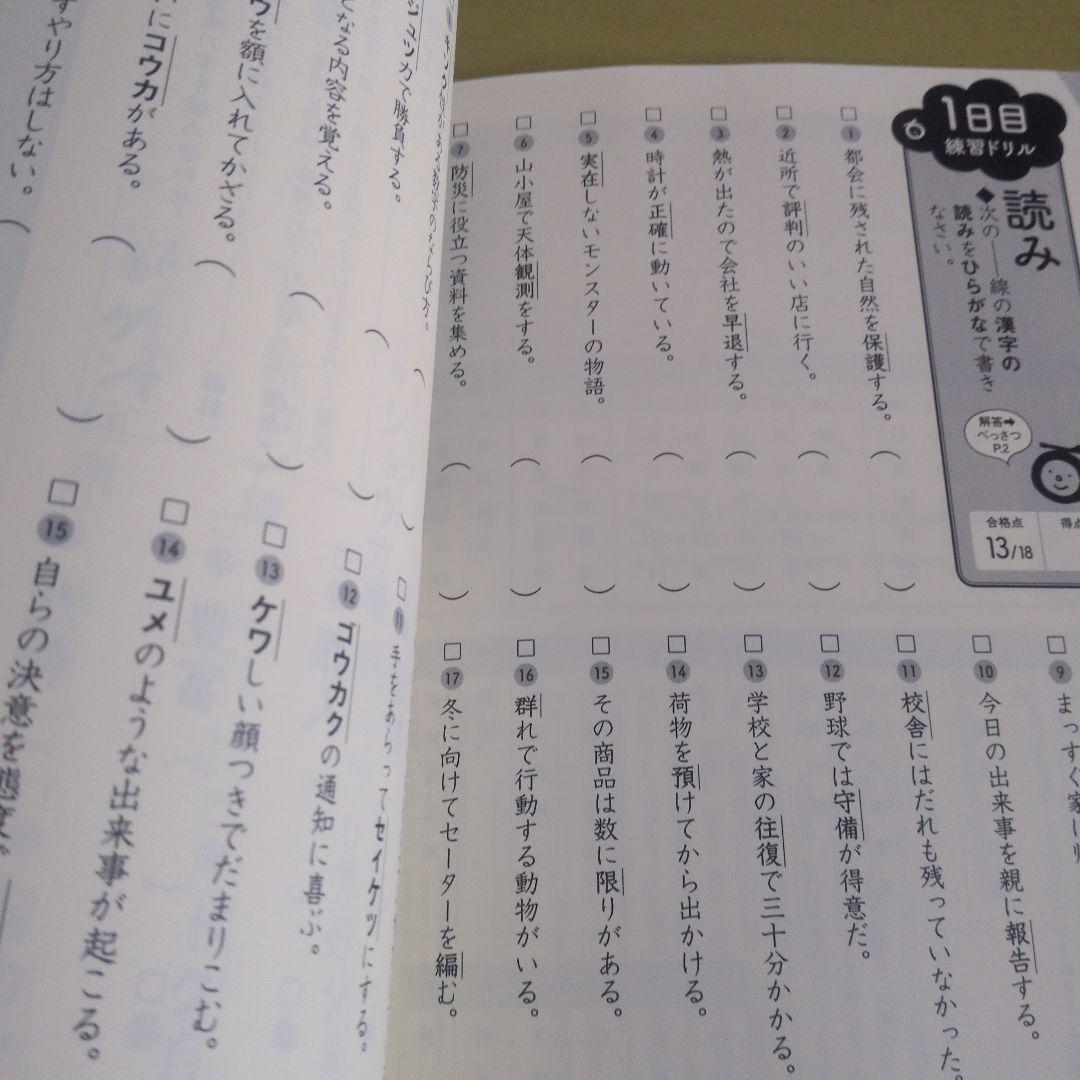 1日目
練習ドリル
読み
◆次の――線の漢字の
読みをひらがなで書き
なさい。
解答➡
べっさつ
P.2
合格点
13/18
得点
□1 都会に残された自然を保護する。（　　）
□2 近所で評判のいい店に行く。（　　）
□3 熱が出たので会社を早退する。（　　）
□4 時計が正確に動いている。（　　）
□5 実在しないモンスターの物語。（　　）
□6 山小屋で天体観測をする。（　　）
□7 防災に役立つ資料を集める。（　　）
9 まっすぐ家に
□10 今日の出来事を親に報告する。
□11 校舎にはだれも残っていなかった。
□12 野球では守備が得意だ。
□13 学校と家の往復で三十分かかる。
□14 荷物を預けてから出かける。
□15 その商品は数に限りがある。
□16 群れで行動する動物がいる。
□17 冬に向けてセーターを編む。
ジュツカで勝負する。（　　）
てなる内容を覚える。（　　）
ウを額に入れてかざる。（　　）
にコウカがある。（　　）
すやり方はしない。（
□11 手をあらってセイケツにする。
□12 ゴウカクの通知に喜ぶ。
□13 ケワしい顔つきでだまりこむ。
□14 ユメのような出来事が起こる。
□15 自らの決意を態度で